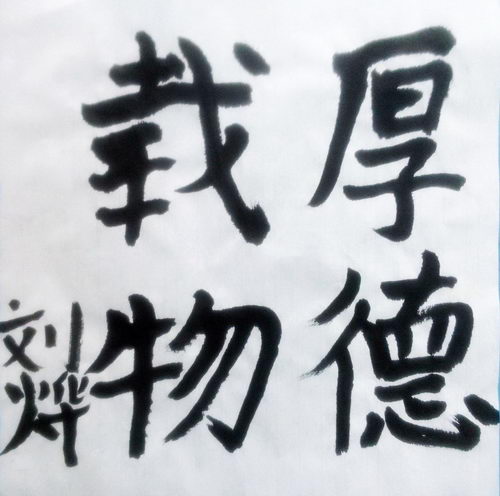 厚德
载物
刘烨